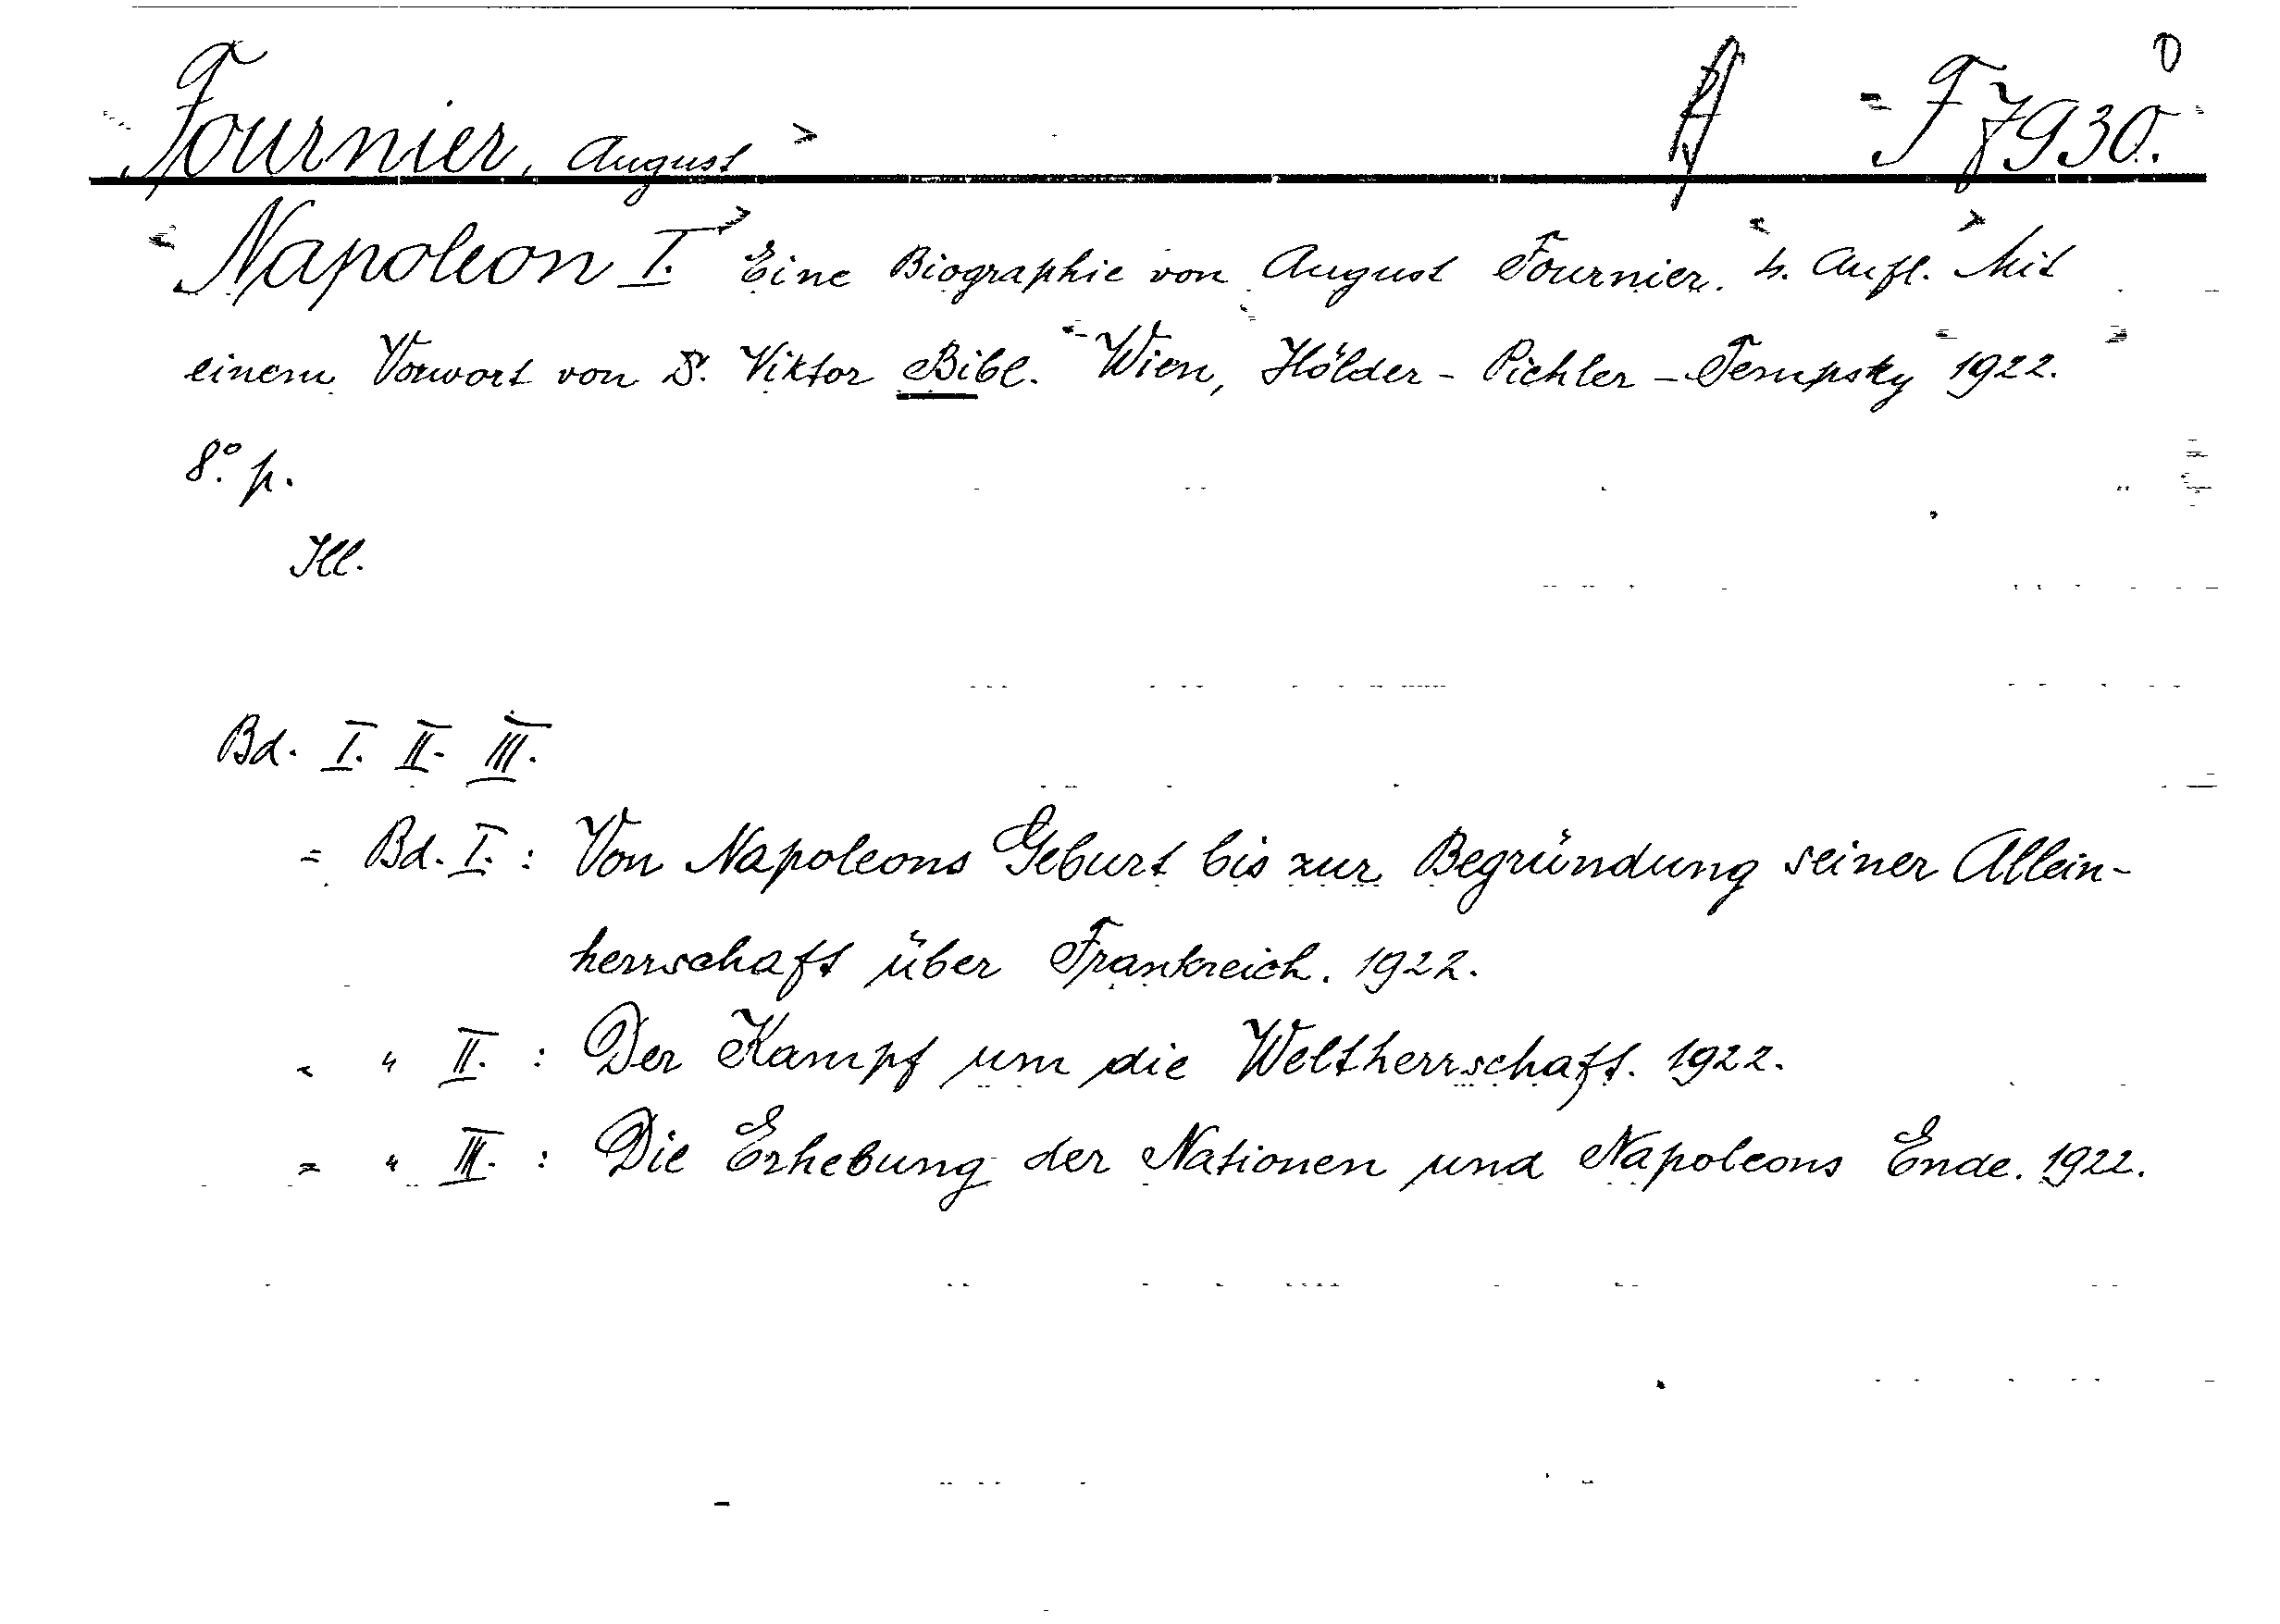 Fournier, August F 7930.
Napoleon I. Eine Biographie von August Fournier. 4. Aufl. Mit
einem Vorwort von Dr. Viktor Bibl. Wien, Hölder-Pichler-Tempsky 1922.
8°. p.
Ill.
Bd. I. II. III.
= Bd. I. : Von Napoleons Geburt bis zur Begründung seiner Allein-
herrschaft über Frankreich. 1922.
= " II. : Der Kampf um die Weltherrschaft. 1922.
= " III. : Die Erhebung der Nationen und Napoleons Ende. 1922.